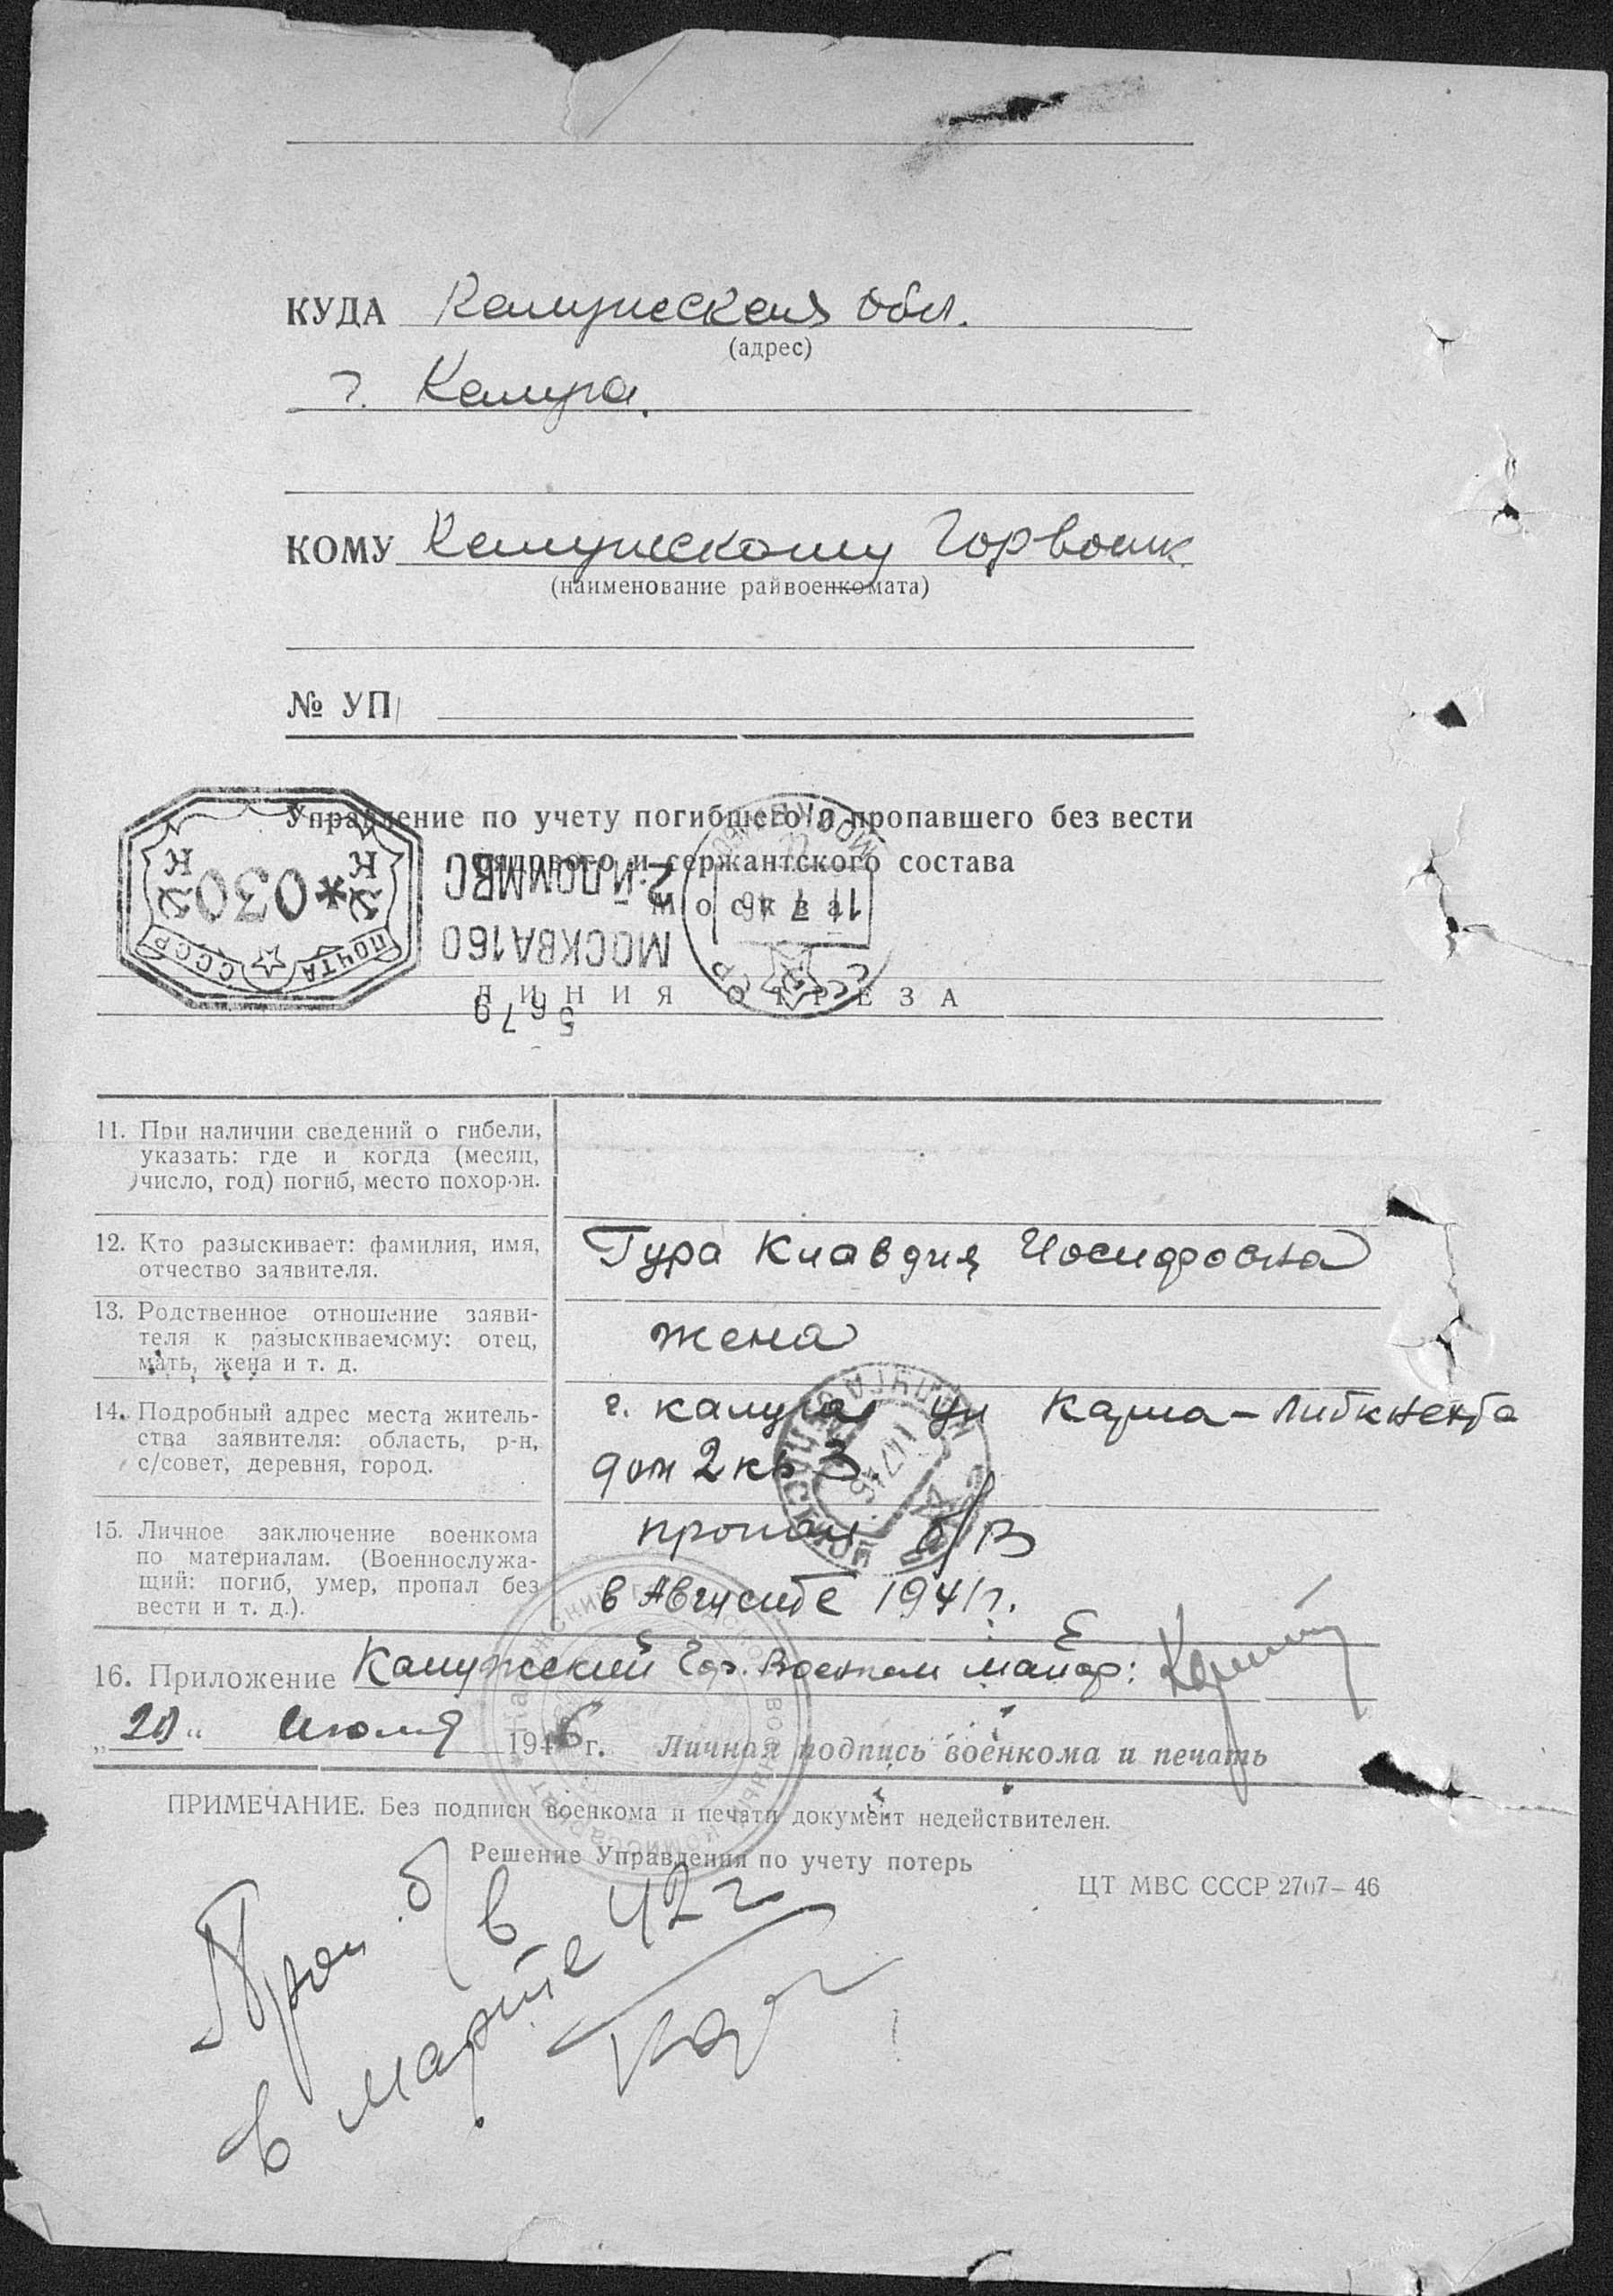 КУДА Калужская обл.
(адрес)
г. Калуга.
КОМУ Калужскому Горвоенк.
(наименование райвоенкомата)
№ УП
Управление по учету погибшего и пропавшего без вести
рядового и сержантского состава
Москва
ПОЧТА СССР
*030
МОСКВА 160
2-Й ДОМ МВС
11 7 46
5679
ЛИНИЯ ОТРЕЗА
11. При наличии сведений о гибели,
указать: где и когда (месяц,
число, год) погиб, место похорон.
12. Кто разыскивает: фамилия, имя,
отчество заявителя.
Гура Клавдия Иосифовна
13. Родственное отношение заяви-
теля к разыскиваемому: отец,
мать, жена и т. д.
жена
14. Подробный адрес места житель-
ства заявителя: область, р-н,
с/совет, деревня, город.
г. калуга ул Карла-Либкнехта
дом 2 кв 3.
15. Личное заключение военкома
по материалам. (Военнослужа-
щий: погиб, умер, пропал без
вести и т. д.).
пропал б/в
в Августе 1941 г.
16. Приложение Калужский Гор. Военком майор:
„20“ Июля 1946 г. Личная подпись военкома и печать
ПРИМЕЧАНИЕ. Без подписи военкома и печати документ недействителен.
Решение Управления по учету потерь
ЦТ МВС СССР 2707—46
Проп б/в
в марте 42 г